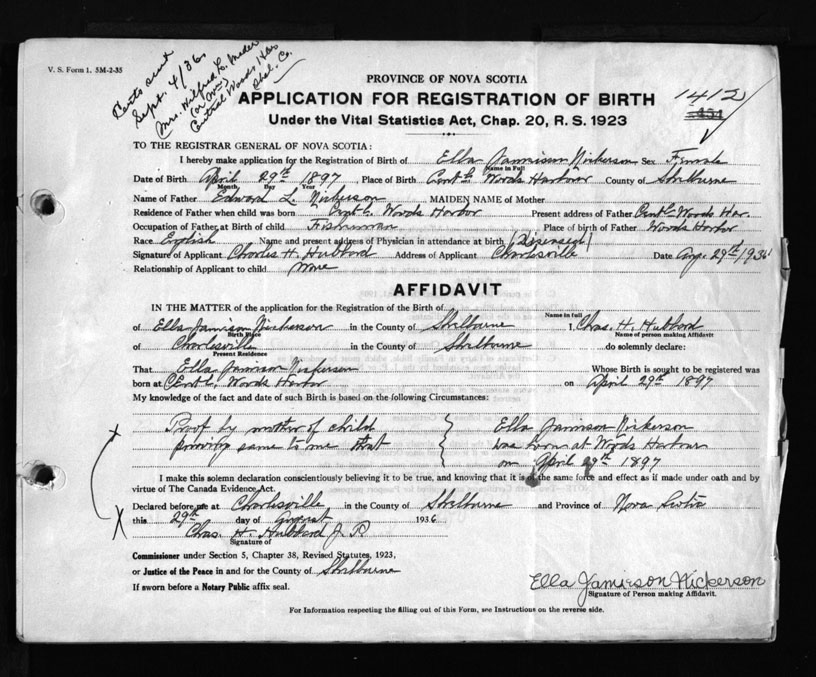 V. S. Form 1. 5M-2-35
Certs sent
Sept. 4/36
Mrs. Wilfred L.
(or me)
Central Woods Har.
Shel. Co.
1412
454
PROVINCE OF NOVA SCOTIA
APPLICATION FOR REGISTRATION OF BIRTH
Under the Vital Statistics Act, Chap. 20, R. S. 1923
TO THE REGISTRAR GENERAL OF NOVA SCOTIA:
I hereby make application for the Registration of Birth of Ella Jamison Nickerson Sex Female
Name in Full
Date of Birth April 29th 1897 Place of Birth Centl. Woods Harbour County of Shelburne
Month Day Year
Name of Father Edward L. Nickerson MAIDEN NAME of Mother
Residence of Father when child was born Centl. Woods Harbor Present address of Father Centl. Woods Har.
Occupation of Father at Birth of child Fisherman Place of birth of Father Woods Harbor
Race English Name and present address of Physician in attendance at birth (Diseased)
Signature of Applicant Charles H. Hubbard Address of Applicant Charlesville Date Aug. 29th 1936
Relationship of Applicant to child None
AFFIDAVIT
IN THE MATTER of the application for the Registration of the Birth of
Name in full
of Ella Jamison Nickerson in the County of Shelburne I, Chas. H. Hubbard
Birth Place Name of person making Affidavit
of Charlesville in the County of Shelburne do solemnly declare:
Present Residence
That Ella Jamison Nickerson Whose Birth is sought to be registered was
born at Centl. Woods Harbor on April 29th 1897
My knowledge of the fact and date of such Birth is based on the following Circumstances:
x Proof by mother of child } Ella Jamison Nickerson
proving same to me that was born at Woods Harbour
on April 29th 1897
I make this solemn declaration conscientiously believing it to be true, and knowing that it is of the same force and effect as if made under oath and by
virtue of The Canada Evidence Act.
Declared before me at Charlesville in the County of Shelburne and Province of Nova Scotia
this 29th day of August 1936
x Chas. H. Hubbard J. P.
Signature of
Commissioner under Section 5, Chapter 38, Revised Statutes, 1923,
or Justice of the Peace in and for the County of Shelburne
If sworn before a Notary Public affix seal.
Ella Jamieson Nickerson
Signature of Person making Affidavit.
For Information respecting the filling out of this Form, see Instructions on the reverse side.